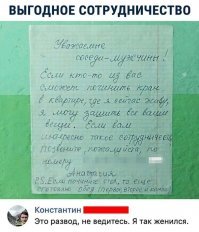 ВЫГОДНОЕ СОТРУДНИЧЕСТВО
Уважаемые
соседи-мужчины!
Если кто-то из вас
сможет починить кран
в квартире, где я сейчас живу,
я могу зашить все ваши
вещи. Если вам
интересно такое сотрудничество,
позвоните, пожалуйста, по
номеру
Анастасия
P.S. Если почините и то еще
обед (первое, второе и
Константин
Это развод, не ведитесь. Я так женился.